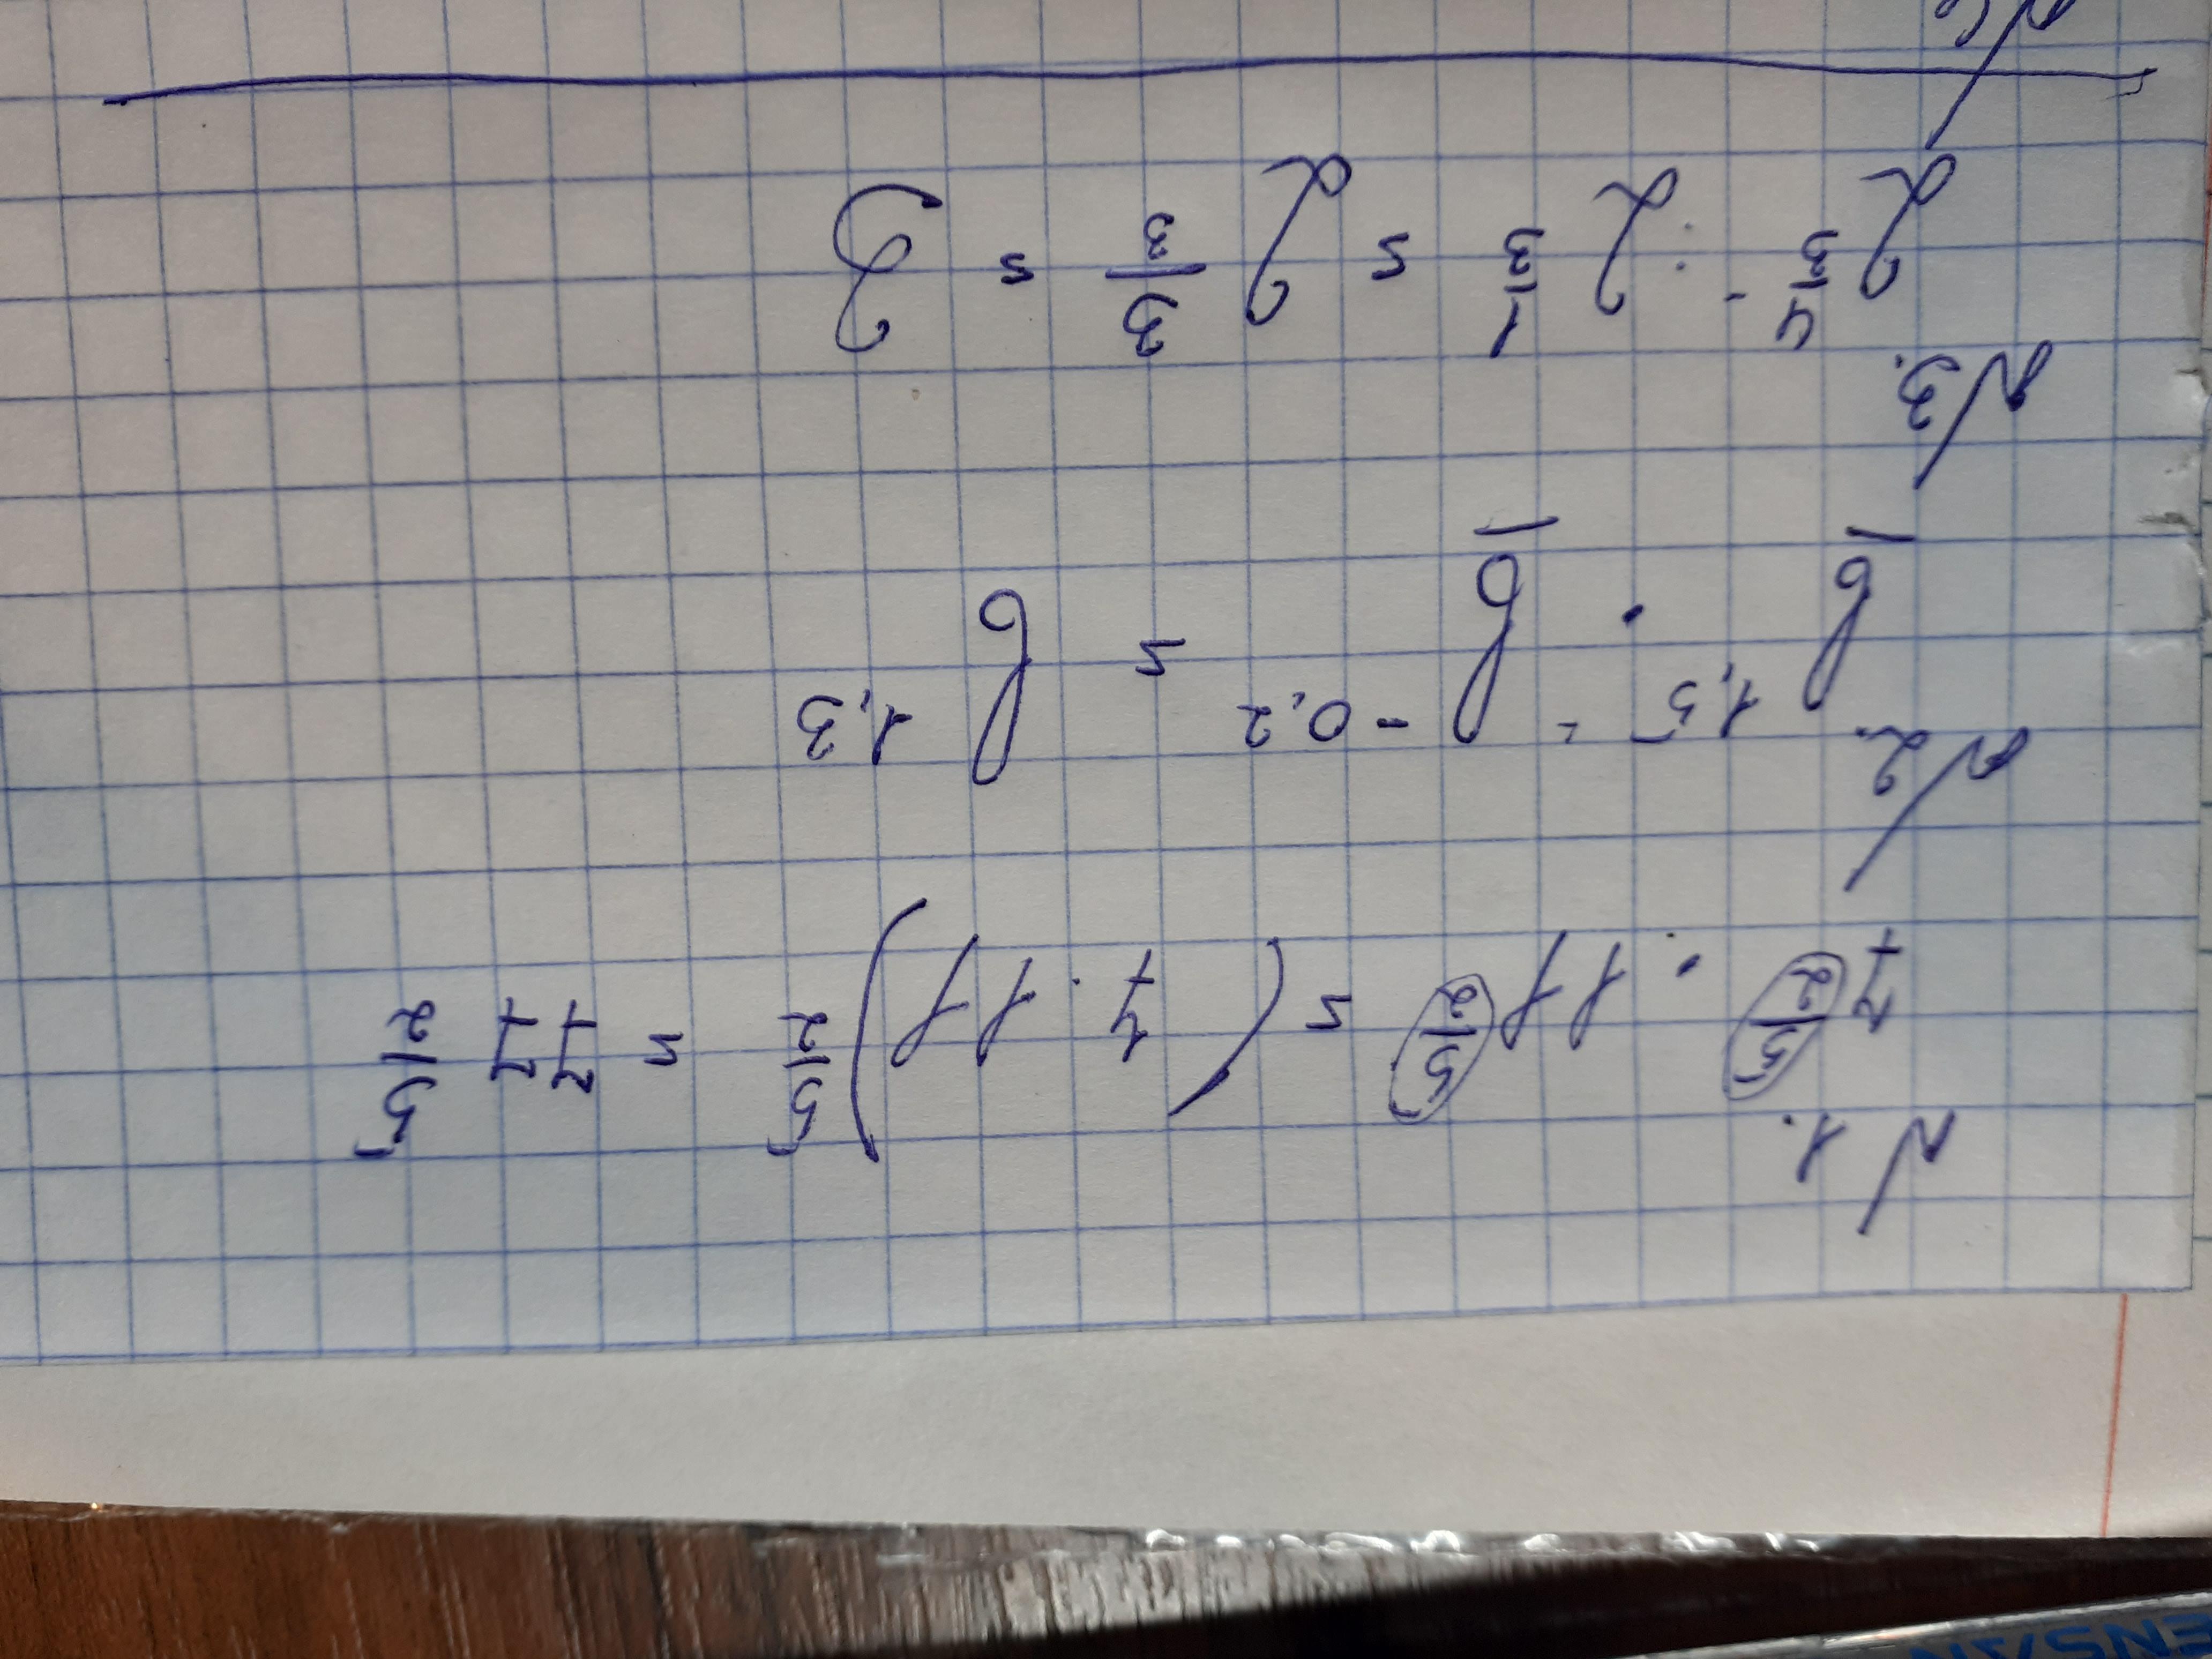 №1.
7^(5/2) · 11^(5/2) = (7 · 11)^(5/2) = 77^(5/2)
№2.
b^(1,5) · b^(-0,2) = b^(1,3)
№3.
2^(4/3) : 2^(1/3) = 2^(3/3) = 2